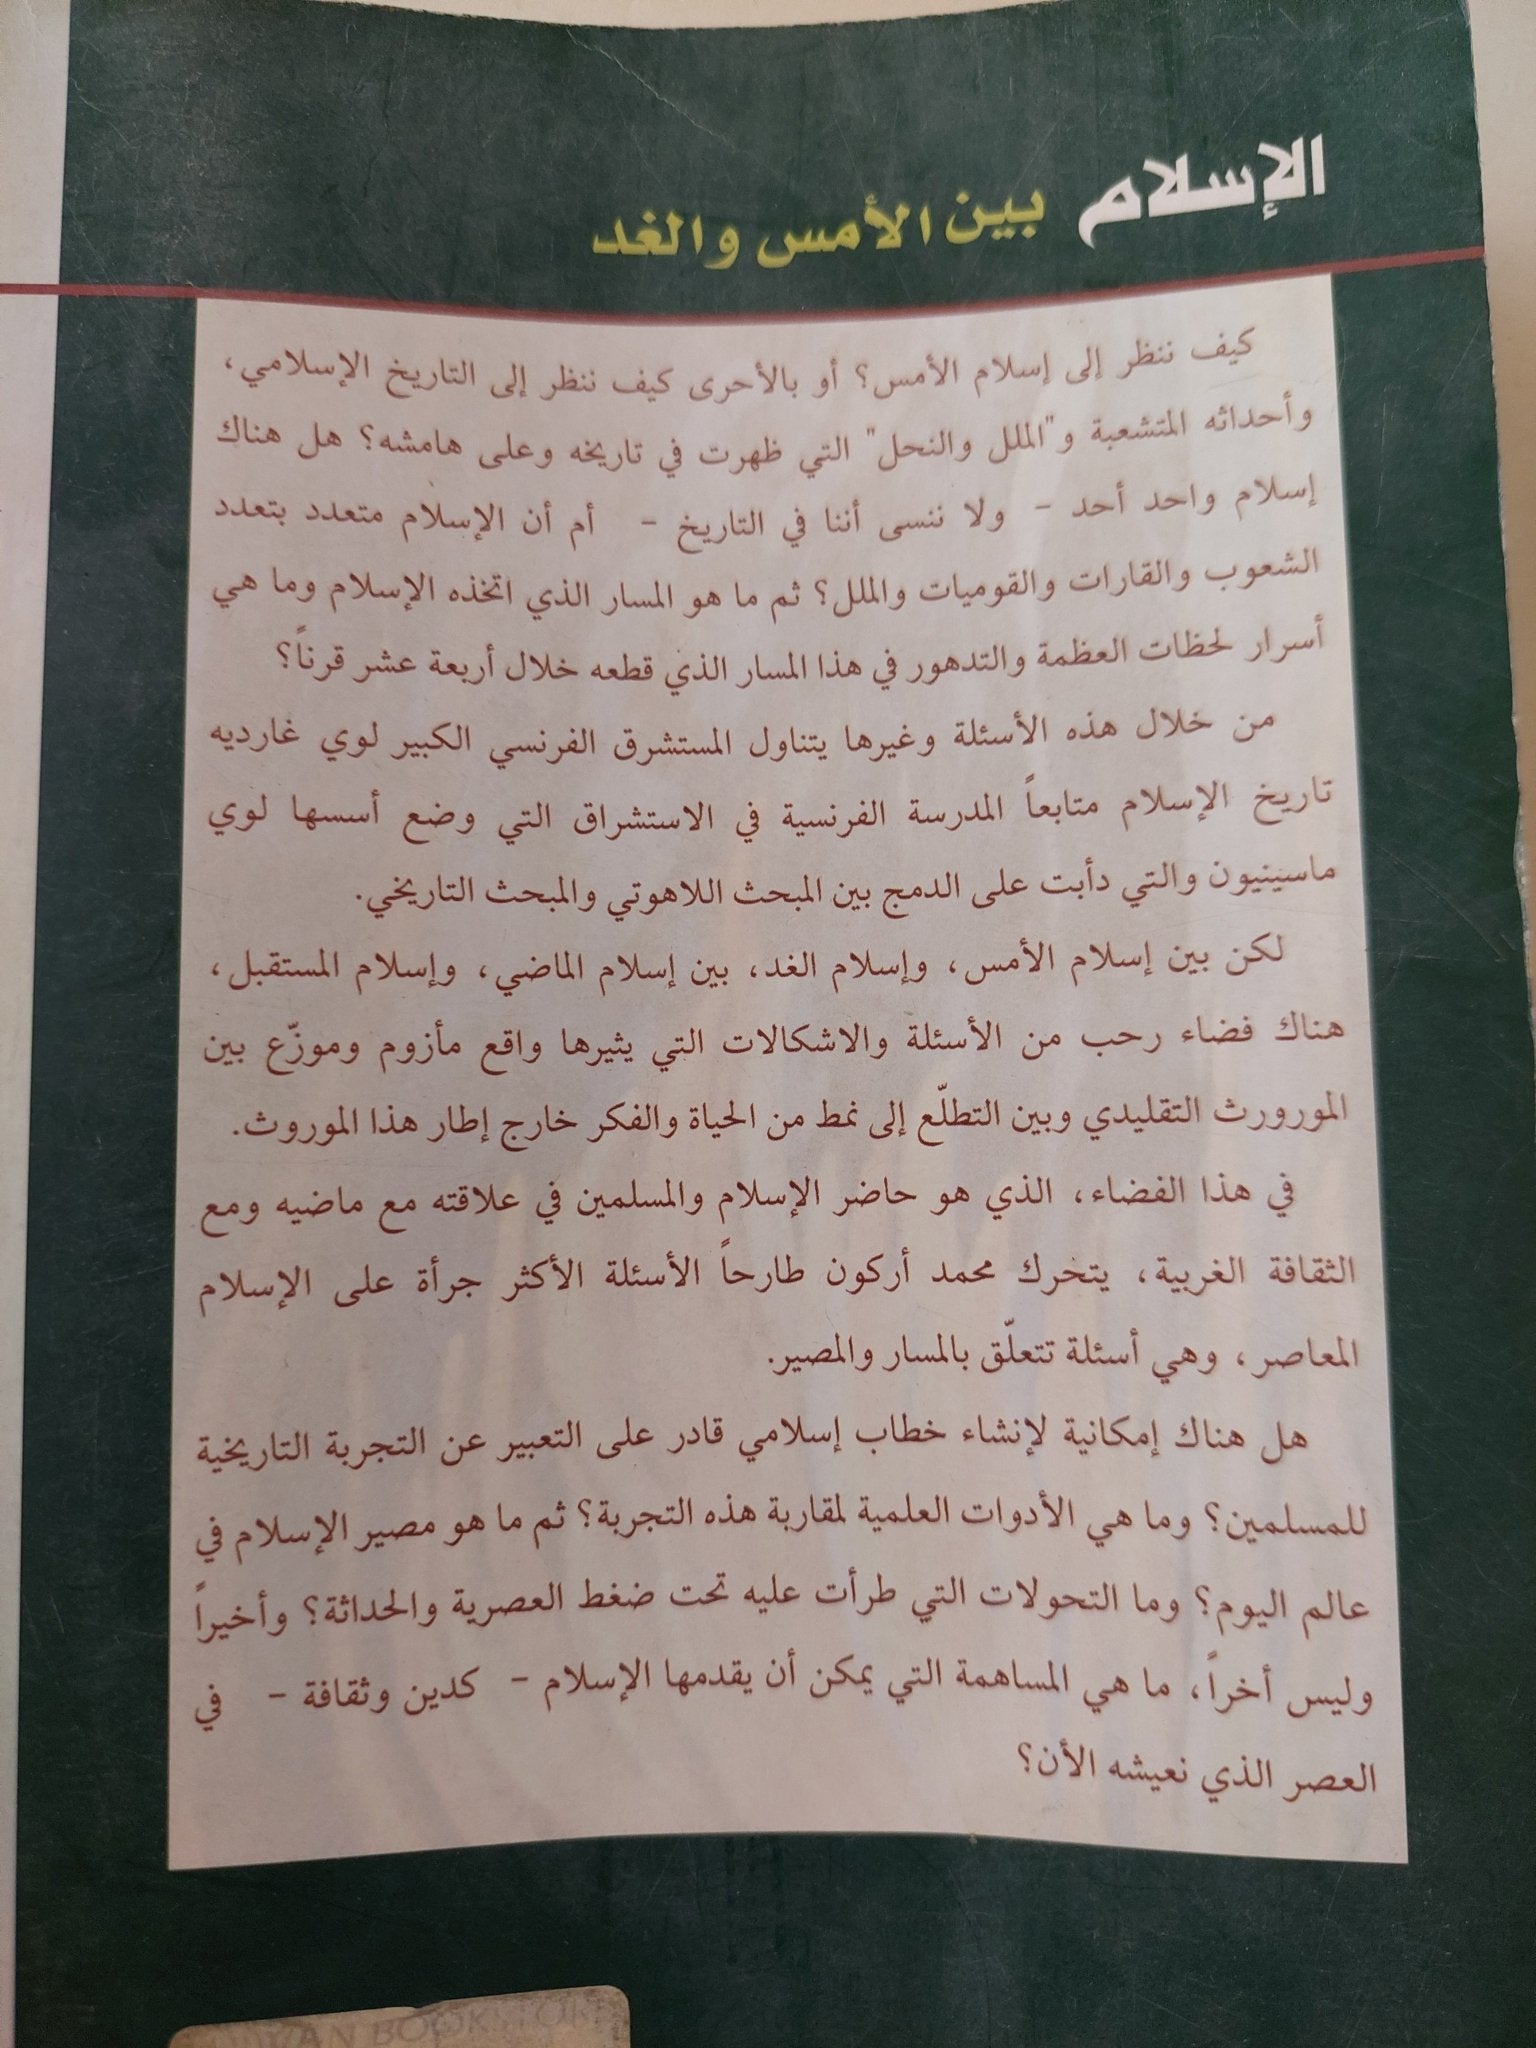 الإسلام بين الأمس والغد
كيف ننظر إلى إسلام الأمس؟ أو بالأحرى كيف ننظر إلى التاريخ الإسلامي،
وأحداثه المتشعبة و"الملل والنحل" التي ظهرت في تاريخه وعلى هامشه؟ هل هناك
إسلام واحد أحد - ولا ننسى أننا في التاريخ - أم أن الإسلام متعدد بتعدد
الشعوب والقارات والقوميات والملل؟ ثم ما هو المسار الذي اتخذه الإسلام وما هي
أسرار لحظات العظمة والتدهور في هذا المسار الذي قطعه خلال أربعة عشر قرناً؟
من خلال هذه الأسئلة وغيرها يتناول المستشرق الفرنسي الكبير لوي غارديه
تاريخ الإسلام متابعاً المدرسة الفرنسية في الاستشراق التي وضع أسسها لوي
ماسينيون والتي دأبت على الدمج بين المبحث اللاهوتي والمبحث التاريخي.
لكن بين إسلام الأمس، وإسلام الغد، بين إسلام الماضي، وإسلام المستقبل،
هناك فضاء رحب من الأسئلة والاشكالات التي يثيرها واقع مأزوم وموزّع بين
المورورث التقليدي وبين التطلّع إلى نمط من الحياة والفكر خارج إطار هذا الموروث.
في هذا الفضاء، الذي هو حاضر الإسلام والمسلمين في علاقته مع ماضيه ومع
الثقافة الغربية، يتحرك محمد أركون طارحاً الأسئلة الأكثر جرأة على الإسلام
المعاصر، وهي أسئلة تتعلّق بالمسار والمصير.
هل هناك إمكانية لإنشاء خطاب إسلامي قادر على التعبير عن التجربة التاريخية
للمسلمين؟ وما هي الأدوات العلمية لمقاربة هذه التجربة؟ ثم ما هو مصير الإسلام في
عالم اليوم؟ وما التحولات التي طرأت عليه تحت ضغط العصرية والحداثة؟ وأخيراً
وليس أخراً، ما هي المساهمة التي يمكن أن يقدمها الإسلام - كدين وثقافة - في
العصر الذي نعيشه الأن؟